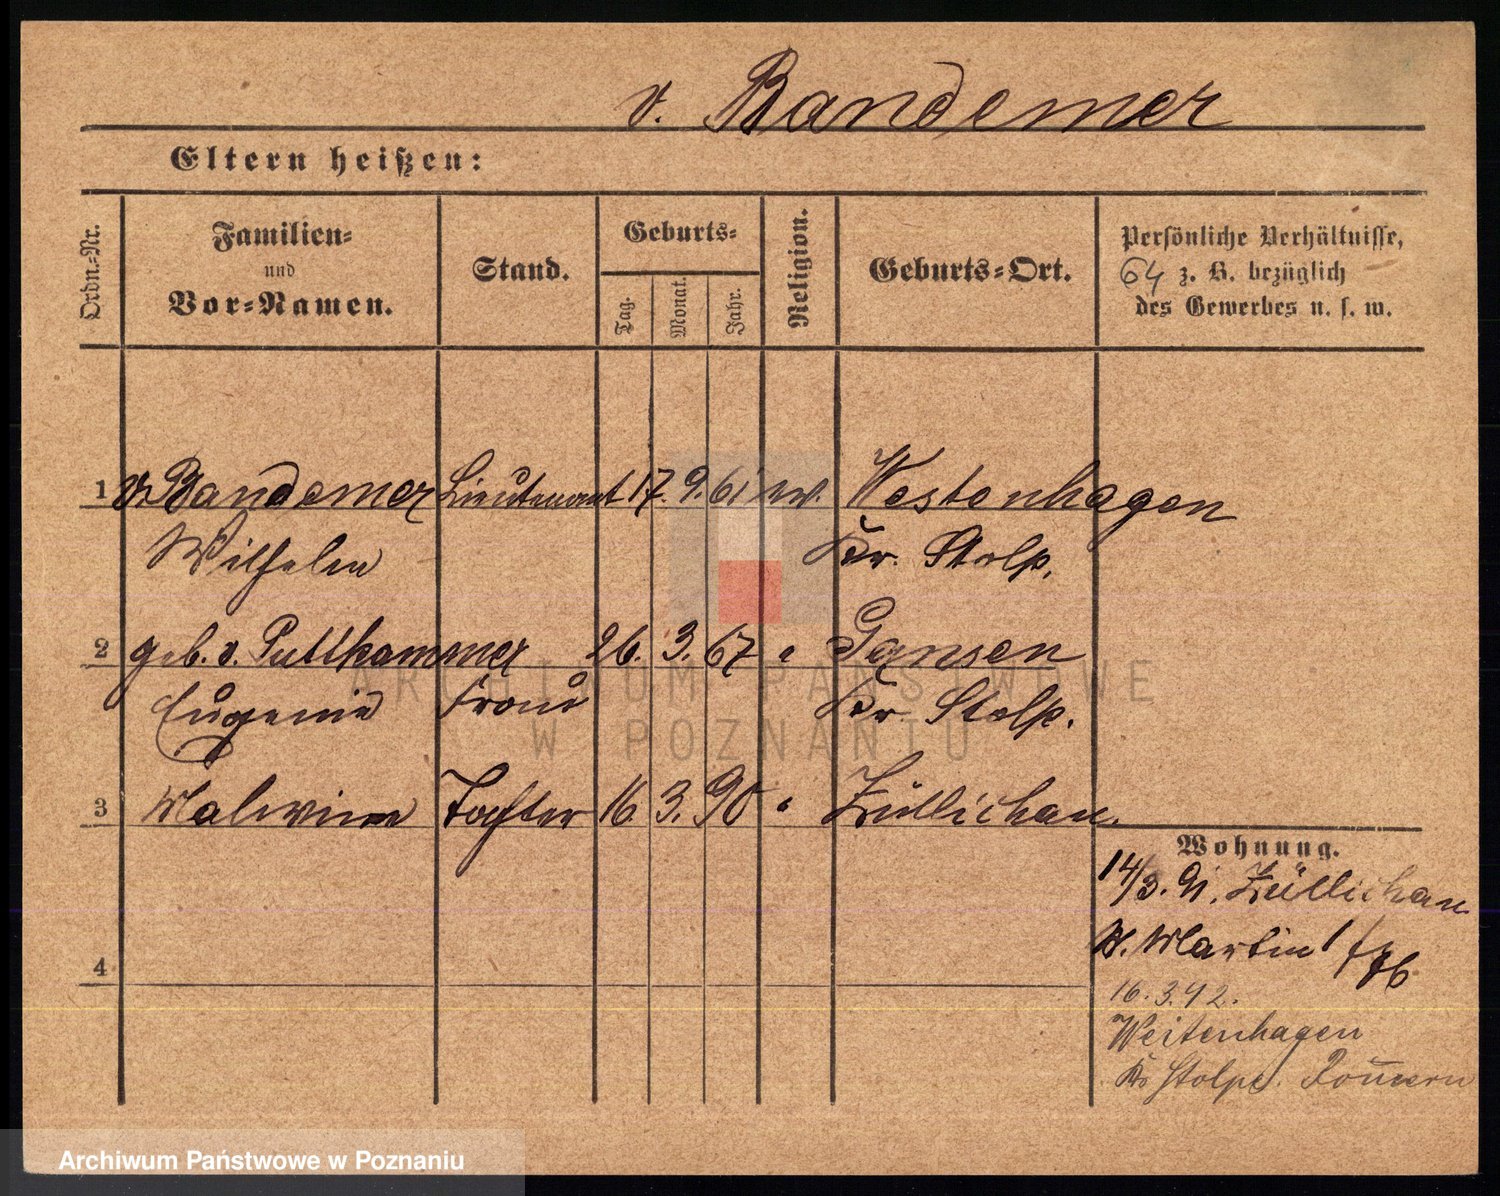 v. Bandemer
Eltern heißen:
Ordn.-Nr.
Familien-
und
Vor-Namen.
Stand.
Geburts-
Tag.
Monat.
Jahr.
Religion.
Geburts-Ort.
Persönliche Verhältnisse,
64 z. B. bezüglich
des Gewerbes u. s. w.
1 v. Bandemer Lieutenant 17. 9. 61 ev. Westenhagen
Wilhelm Kr. Stolp.
2 geb. v. Puttkammer 26. 3. 67 " Gansen
Eugenie Frau Kr. Stolp.
3 Malwine Tochter 16 3. 90 " Züllichau.
Wohnung.
14/3. 91. Züllichau
St. Martin
4
16.3.92.
Weitenhagen
Kr Stolpe. Pom̄ern
ARCHIWUM PAŃSTWOWE
W POZNANIU
Archiwum Państwowe w Poznaniu